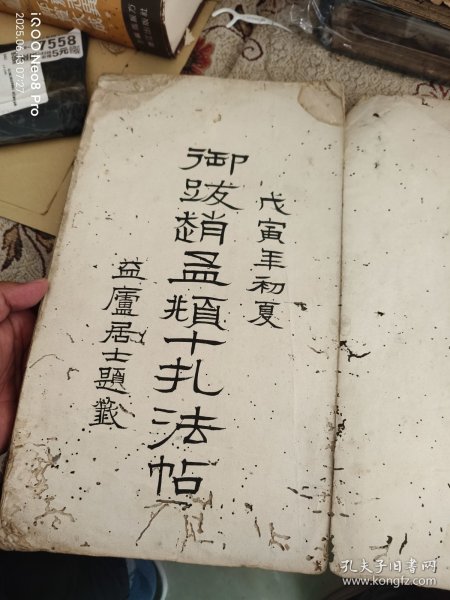 戊寅年初夏
御跋趙孟頫十扎法帖
益廬居士題籤
iQOO Neo8 Pro
2025.06.13 07:27
7558
孔夫子旧书网
https://www.kongfz.com